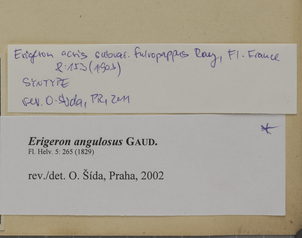 Erigeron acris subvar. fulvopappus Rouy, Fl. France
8: 153 (1903)
SYNTYPE
rev. O. Šída, PR, 2011
Erigeron angulosus GAUD.
Fl. Helv. 5: 265 (1829)
rev./det. O. Šída, Praha, 2002